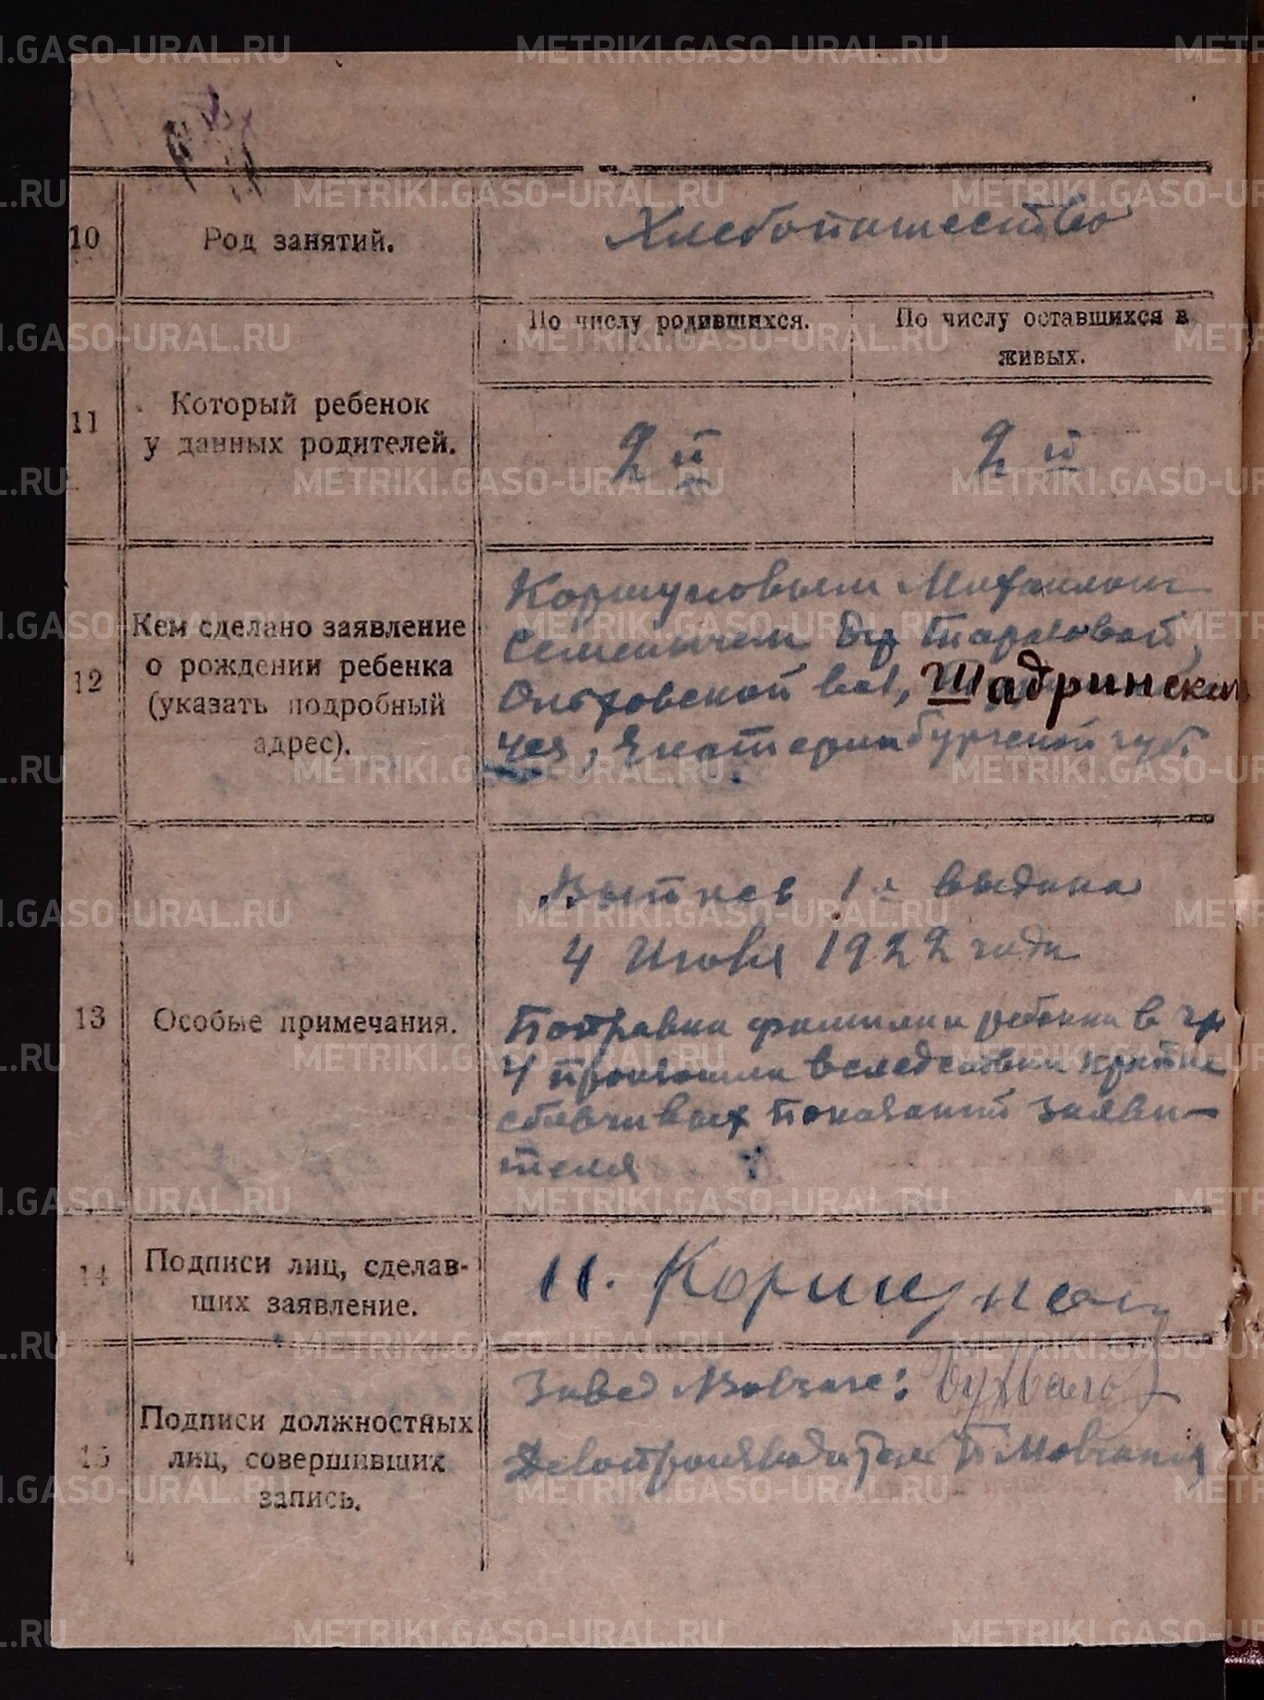 10
Род занятий.
Хлебопашество
11
Который ребенок
у данных родителей.
По числу родившихся.
2й
По числу оставшихся в
живых.
2й
12
Кем сделано заявление
о рождении ребенка
(указать подробный
адрес).
Коршуновым Михаилом
Семенычем
Вол, Шадринской
уез, Екатеринбургской губ
13
Особые примечания.
1я выдана
4 1922 года
Поправка фамилии ребенка в гр
4 произошла вследствии
показаний заяви-
теля
14
Подписи лиц, сделав-
ших заявление.
Коршунов
15
Подписи должностных
лиц, совершивших
запись.
Завед
Делопроизводитель
METRIKI.GASO-URAL.RU